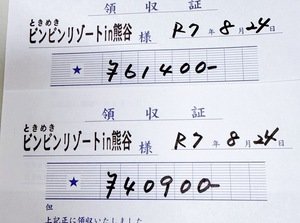 領収証
ときめき
ビンビンリゾートin熊谷 様 R7年8月24日
★ ¥61400-
領収証
ときめき
ビンビンリゾートin熊谷 様 R7年8月24日
★ ¥40900-
但
上記正に領収いたしました